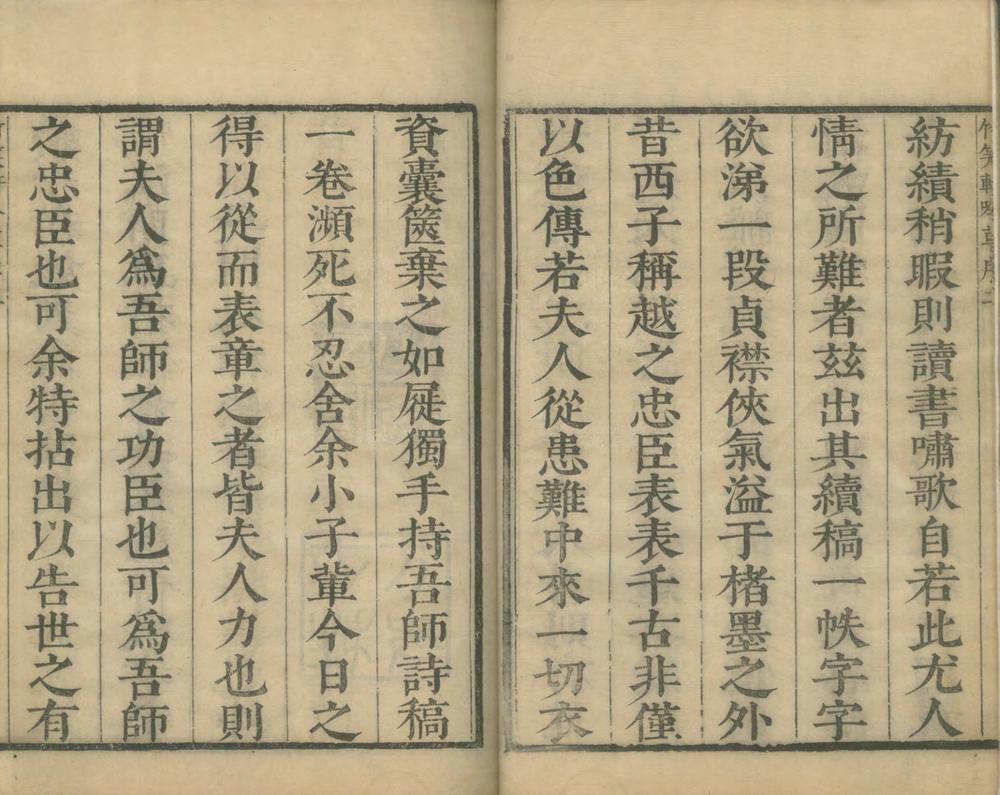 竹笑軒吟草序二
紡績稍暇則讀書嘯歌自若此尤人
情之所難者茲出其續稿一帙字字
欲涕一段貞襟俠氣溢于楮墨之外
昔西子稱越之忠臣表表千古非僅
以色傳若夫人從患難中來一切衣
資囊篋棄之如屣獨手持吾師詩稿
一卷瀕死不忍舍余小子輩今日之
得以從而表章之者皆夫人力也則
謂夫人爲吾師之功臣也可爲吾師
之忠臣也可余特拈出以告世之有